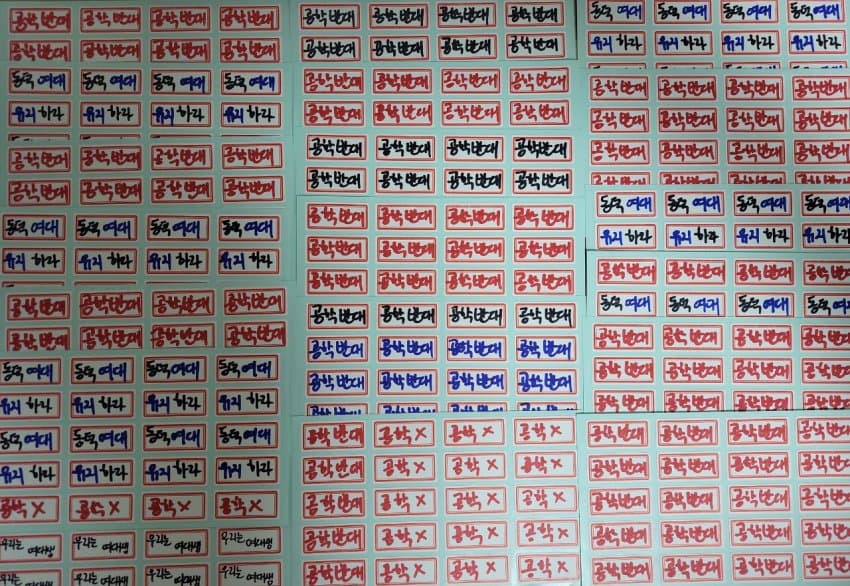 공학반대 공학반대 공학반대 공학반대
공학반대 공학반대 공학반대 공학반대
동덕 여대 동덕 여대 동덕 여대 동덕 여대
유지 하라 유지 하라 유지 하라 유지 하라
공학반대 공학반대 공학반대 공학반대
공학반대 공학반대 공학반대 공학반대
동덕 여대 동덕 여대 동덕 여대 동덕 여대
유지 하라 유지 하라 유지 하라 유지 하라
공학반대 공학반대 공학반대 공학반대
공학반대 공학반대 공학반대 공학반대
동덕 여대 동덕 여대 동덕 여대 동덕 여대
유지 하라 유지 하라 유지 하라 유지 하라
동덕 여대 동덕 여대 동덕 여대 동덕 여대
유지 하라 유지 하라 유지 하라 유지 하라
공학 X 공학 X 공학 X 공학 X
우리는 여대생 우리는 여대생 우리는 여대생 우리는 여대생
우리는 여대생 우리는 여대생 우리는 여대생 우리는 여대생
공학반대 공학반대 공학반대 공학반대
공학반대 공학반대 공학반대 공학반대
공학반대 공학반대 공학반대 공학반대
공학반대 공학반대 공학반대 공학반대
공학반대 공학반대 공학반대 공학반대
공학반대 공학반대 공학반대 공학반대
공학반대 공학반대 공학반대 공학반대
공학반대 공학반대 공학반대 공학반대
공학반대 공학반대 공학반대 공학반대
공학반대 공학반대 공학반대 공학반대
공학반대 공학반대 공학반대 공학반대
공학반대 공학반대 공학반대 공학반대
공학반대 공학 X 공학 X 공학 X
공학반대 공학 X 공학 X 공학 X
공학반대 공학 X 공학 X 공학 X
공학반대 공학 X 공학 X 공학 X
공학반대 공학 X 공학 X 공학 X
동덕 여대 동덕 여대 동덕 여대 동덕 여대
유지 하라 유지 하라 유지 하라 유지 하라
공학반대 공학반대 공학반대 공학반대
공학반대 공학반대 공학반대 공학반대
공학반대 공학반대 공학반대 공학반대
동덕 여대 동덕 여대 동덕 여대 동덕 여대
유지 하라 유지 하라 유지 하라 유지 하라
공학반대 공학반대 공학반대 공학반대
동덕 여대 동덕 여대 동덕 여대 동덕 여대
공학반대 공학반대 공학반대 공학반대
공학반대 공학반대 공학반대 공학반대
공학반대 공학반대 공학반대 공학반대
공학반대 공학반대 공학반대 공학반대
공학반대 공학반대 공학반대 공학반대
공학반대 공학반대 공학반대 공학반대
공학반대 공학반대 공학반대 공학반대
공학반대 공학반대 공학반대 공학반대